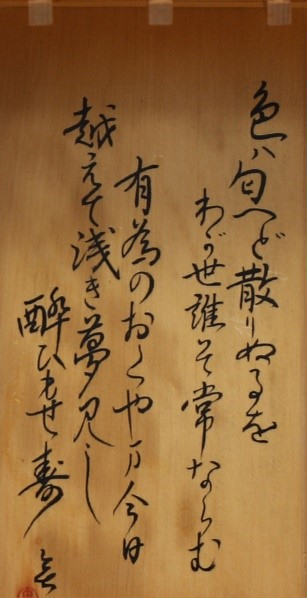 色ハ匂へど散りぬるを
わが世誰そ常ならむ
有為のおくや万今日
越えて浅き夢見じ
酔ひもせ寿